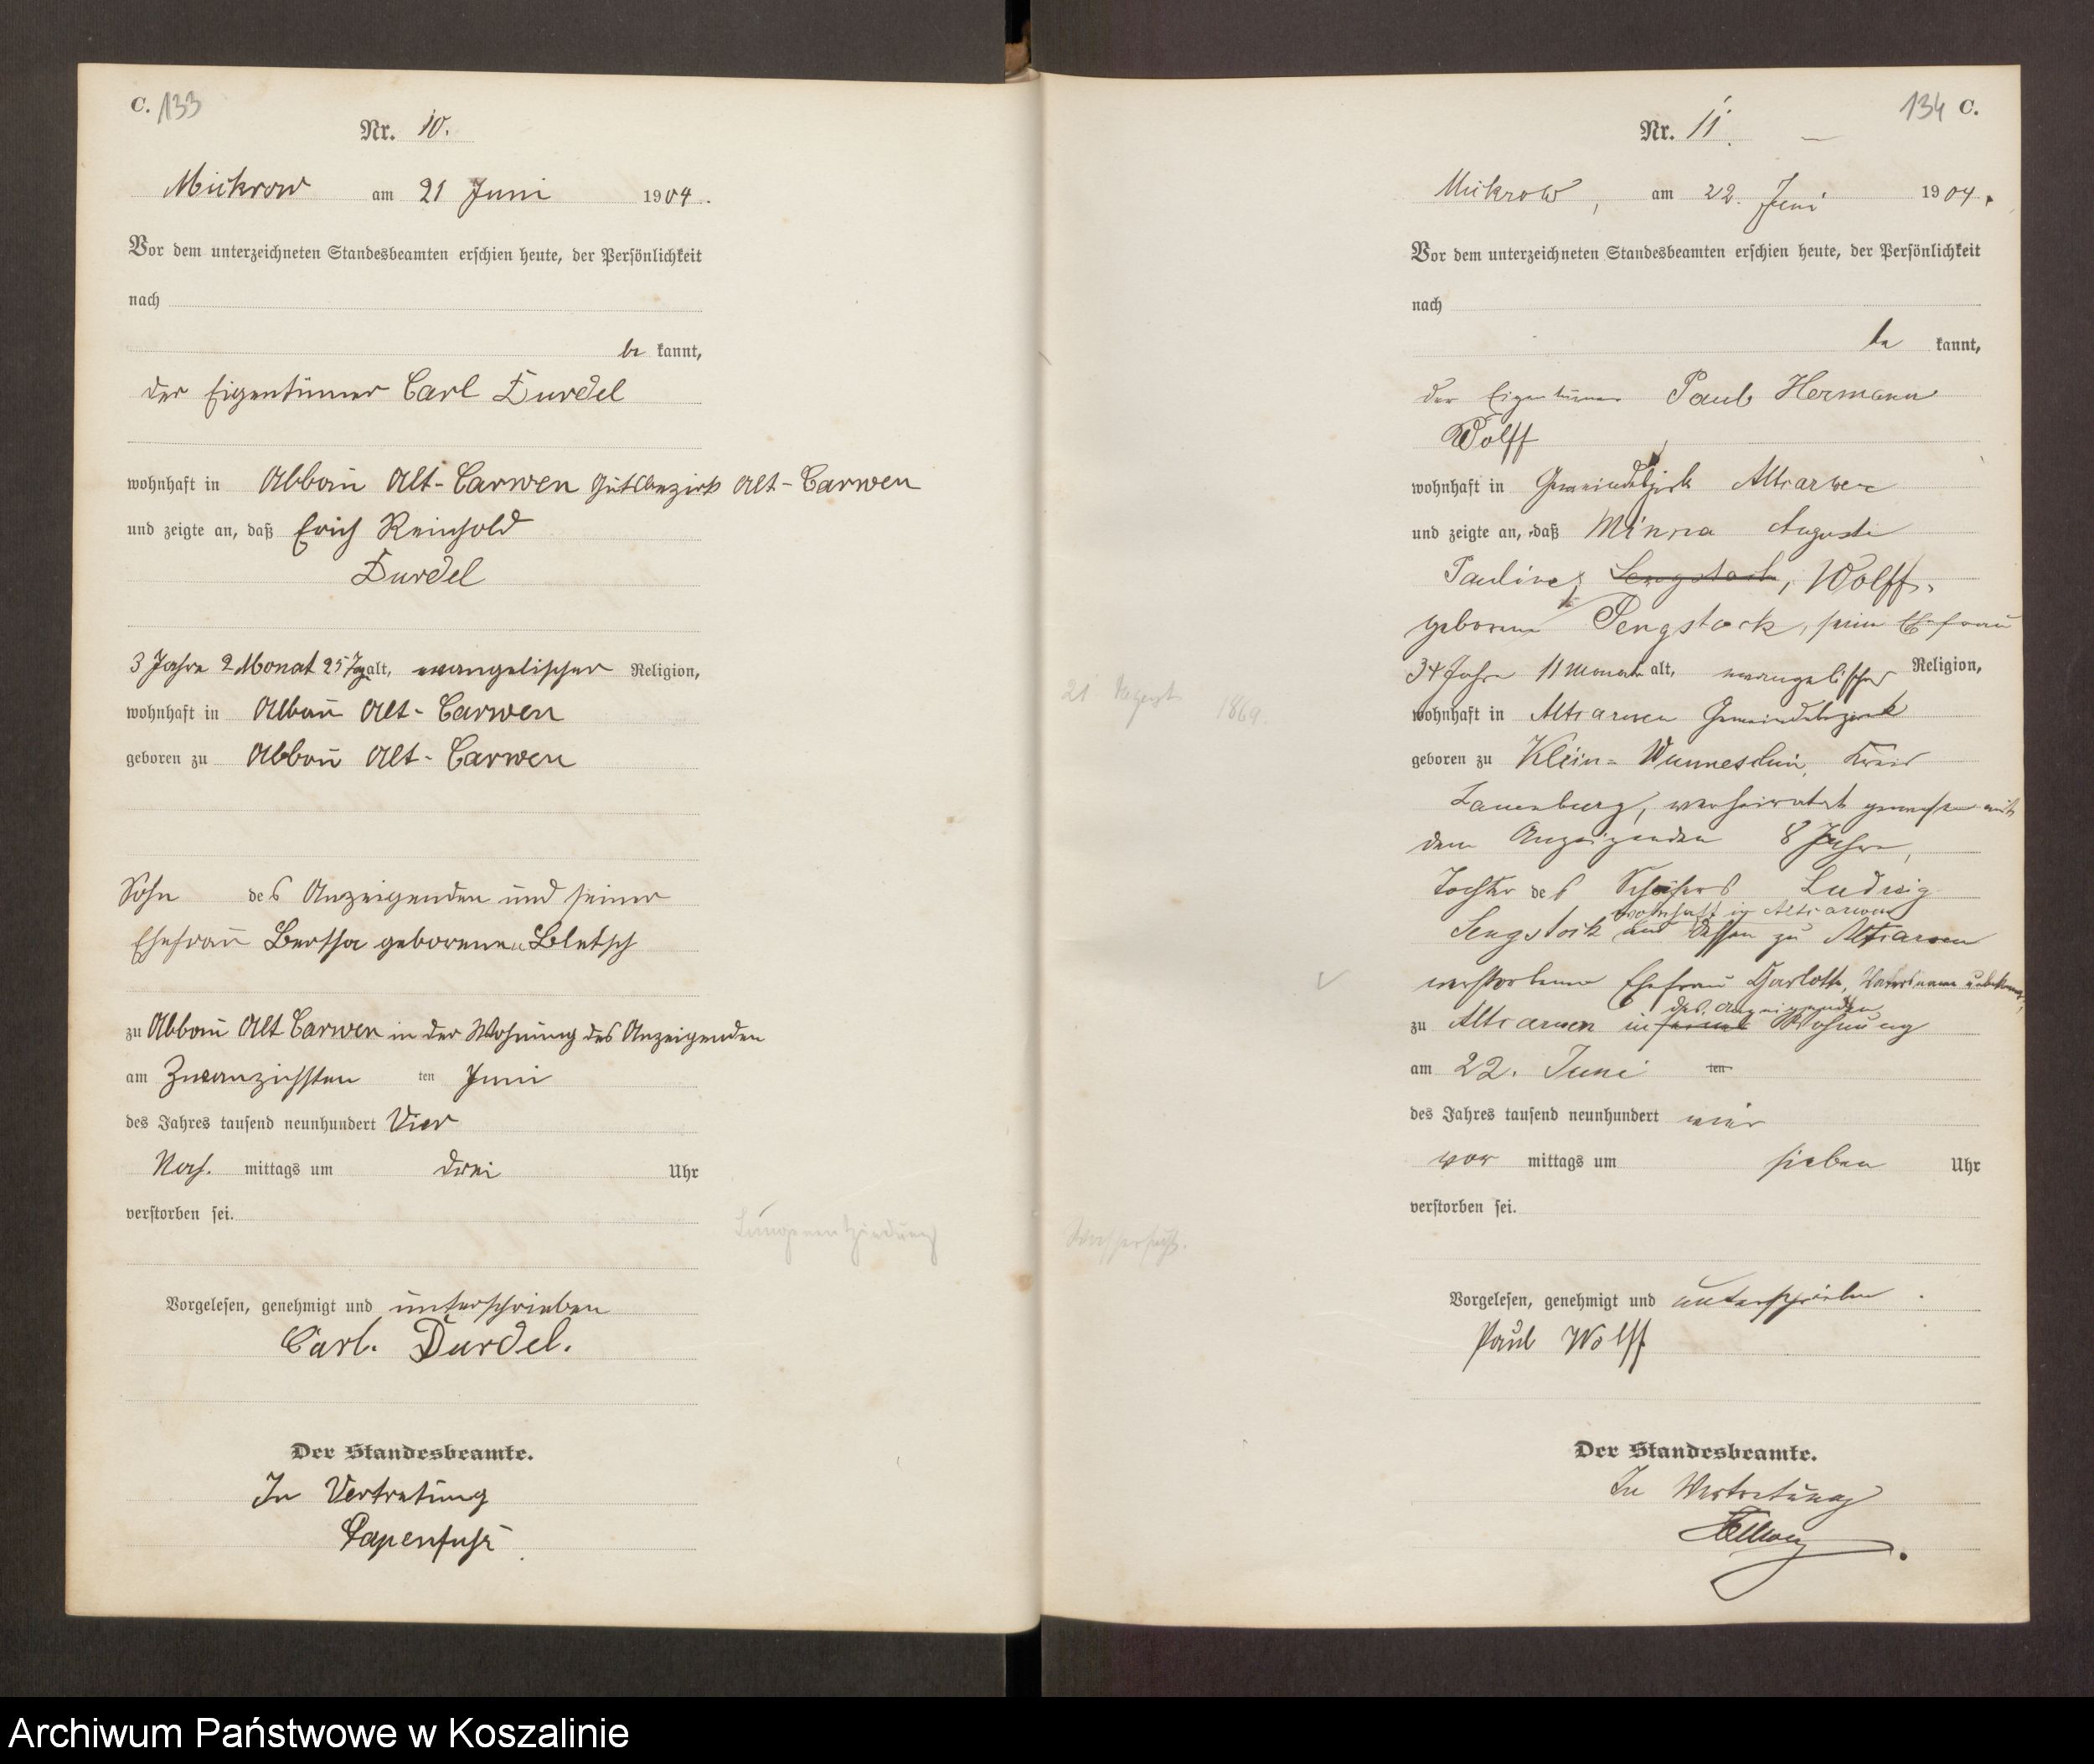 C. 133
Nr. 10.
Mickrow am 21 Juni 1904.
Vor dem unterzeichneten Standesbeamten erschien heute, der Persönlichkeit
nach
be kannt,
der Eigentümer Carl Durdel
wohnhaft in Abbau Alt-Carwen Gutsbezirk Alt-Carwen
und zeigte an, daß Erich Reinhold
Durdel
3 Jahre 2 Monat 25 Tg alt, evangelischer Religion,
wohnhaft in Abbau Alt-Carwen
geboren zu Abbau Alt-Carwen
Sohn des Anzeigenden und seiner
Ehefrau Bertha geborenen Bletsch
zu Abbau Alt Carwen in der Wohnung des Anzeigenden
am Zwanzichsten ten Juni
des Jahres tausend neunhundert Vier
Nach. mittags um drei Uhr
verstorben sei.
Lungenentzündung
Vorgelesen, genehmigt und unterschrieben
Carl. Durdel.
Der Standesbeamte.
In Vertretung
Papenfuß
134 C.
Nr. 11.
Mickrow, am 22. Juni 1904.
Vor dem unterzeichneten Standesbeamten erschien heute, der Persönlichkeit
nach
be kannt,
der Eigentümer Paul Hermann
Wolff
wohnhaft in Gemeindebezirk Altcarwen
und zeigte an, daß Minna Auguste
Pauline, Sengstock, Wolff,
geborene Sengstock, seine Ehefrau
34 Jahre 11 Monate alt, evangelischer Religion,
21 August 1869.
wohnhaft in Altcarwen Gemeindebezirk
geboren zu Klein-Wunneschin, Kreis
Lauenburg, verheiratet gewesen mit
dem Anzeigenden 8 Jahre,
Tochter des Schäfers Ludwig
wohnhaft in Altcarwen
Sengstock und dessen zu Altcarwen
verstorbene Ehefrau Charlotte, Vatersname unbekannt,
des Anzeigenden
zu Altcarwen in seiner Wohnung
am 22. Juni ten
des Jahres tausend neunhundert vier
vor mittags um sieben Uhr
verstorben sei.
Wassersucht.
Vorgelesen, genehmigt und unterschrieben.
Paul Wolff
Der Standesbeamte.
In Vertretung
Archiwum Państwowe w Koszalinie